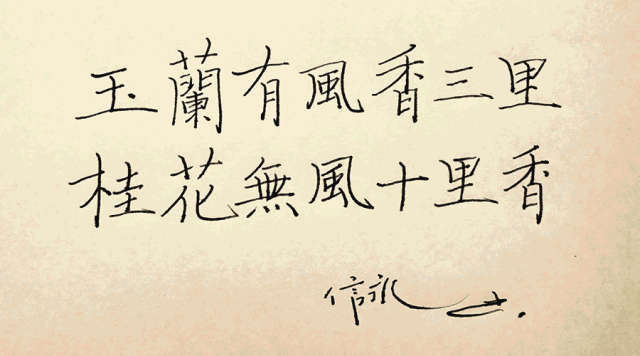 玉蘭有風香三里
桂花無風十里香
信永